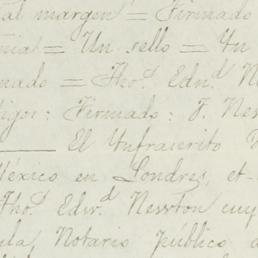 al margen = Firmado
= Un sello = Un
= Tho.d Edw.d N
: Firmado: F. New
El Infrascrito
México en Londres, et
Tho.d Edw.d Newton cuy
Notario Público